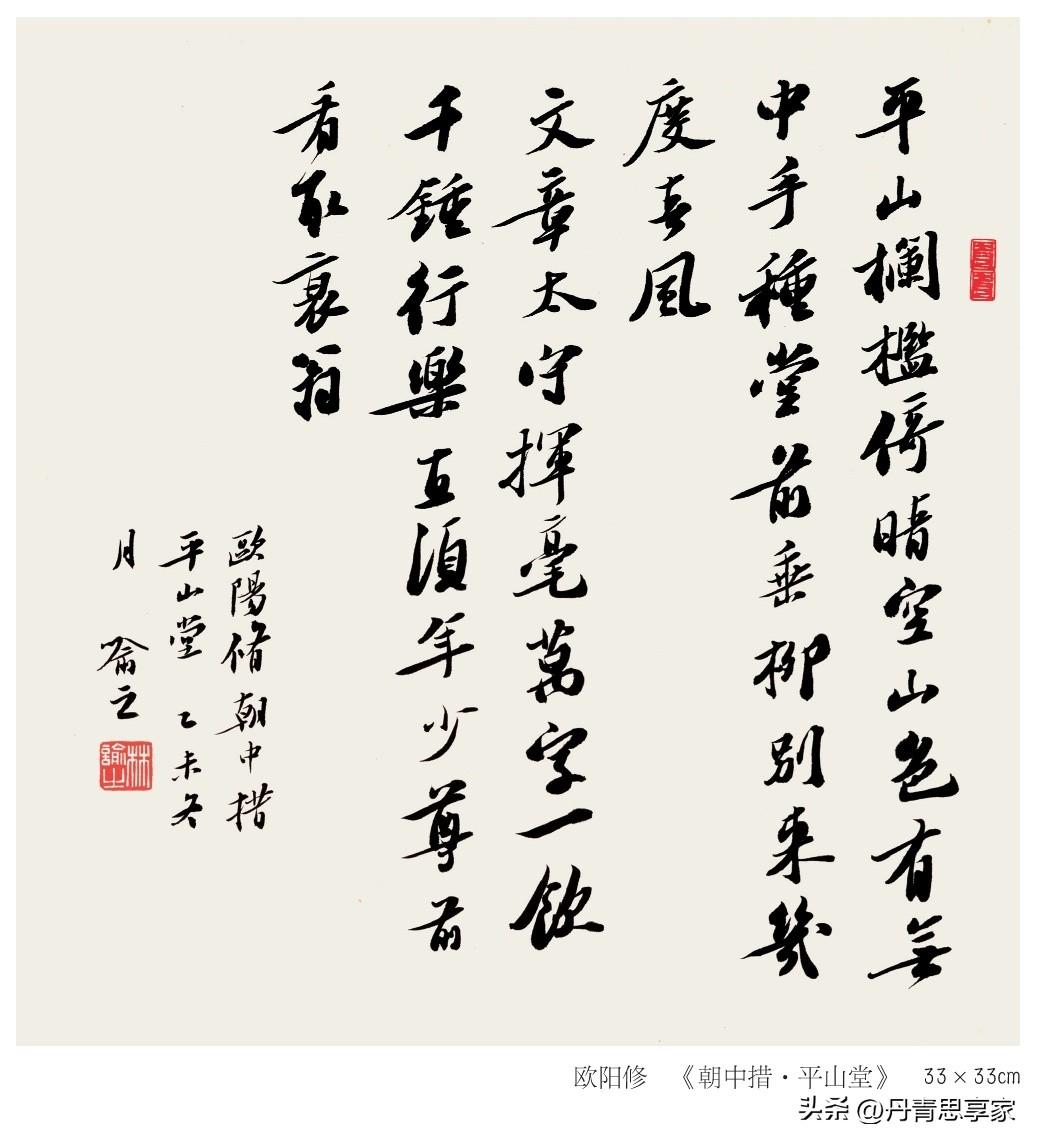 平山欄檻倚晴空山色有無
中手種堂前垂柳別來幾
度春風
文章太守揮毫萬字一飲
千鍾行樂直須年少尊前
看取衰翁
歐陽脩朝中措
平山堂 乙未冬
月 喻之
欧阳修 《朝中措·平山堂》 33×33cm
头条 @丹青思享家